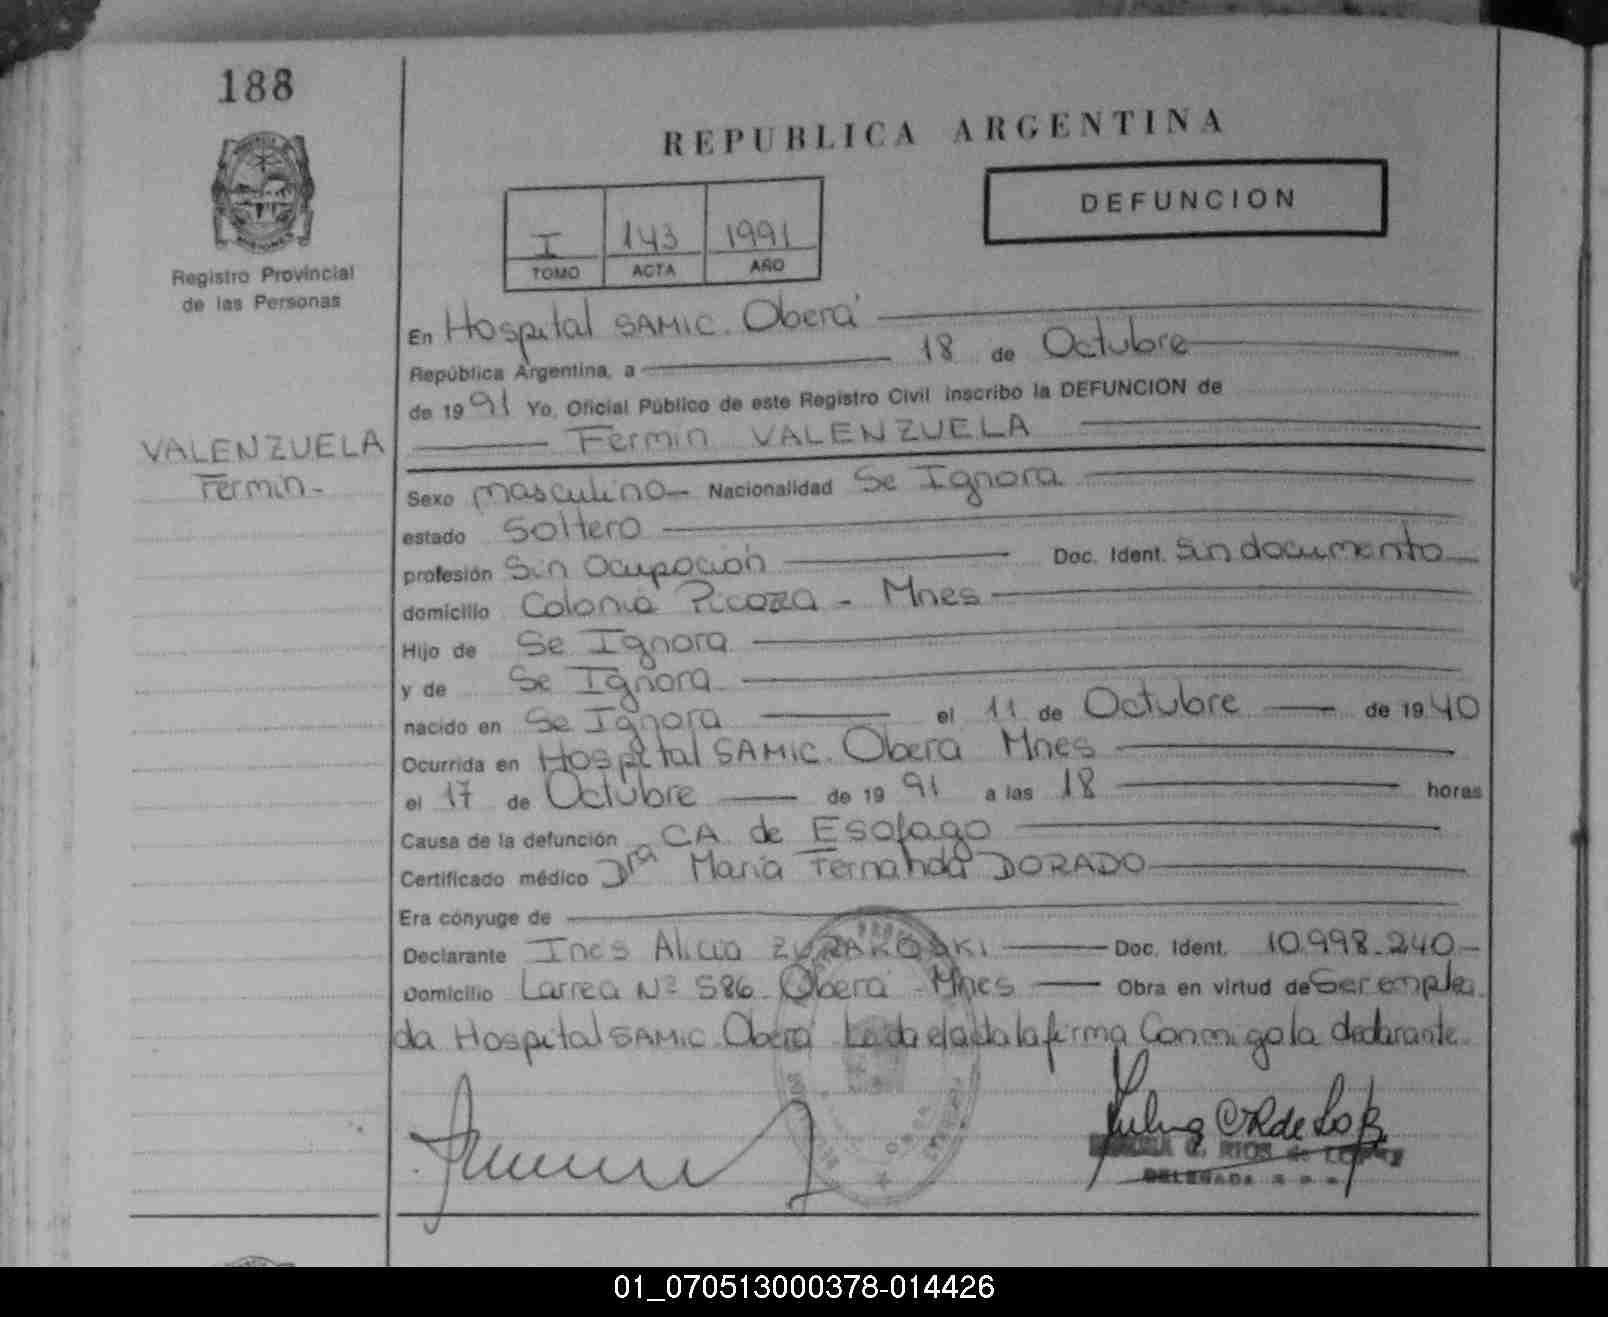 188
REPUBLICA ARGENTINA
DEFUNCION
I 143 1991
TOMO ACTA AÑO
Registro Provincial
de las Personas
En Hospital SAMIC. Oberá
República Argentina, a 18 de Octubre
de 1991 Yo, Oficial Público de este Registro Civil inscribo la DEFUNCION de
Fermin VALENZUELA
VALENZUELA
Fermin-
Sexo masculino Nacionalidad Se Ignora
estado Soltero
profesión Sin Ocupación Doc. Ident. Sin documento
domicilio Colonia Picaza - Mnes
Hijo de Se Ignora
y de Se Ignora
nacido en Se Ignora el 11 de Octubre de 1940
Ocurrida en Hospital SAMIC. Oberá Mnes
el 17 de Octubre de 1991 a las 18 horas
Causa de la defunción CA. de Esofago
Certificado médico Dra María Fernanda DORADO
Era cónyuge de
Declarante Ines Alicia ZURAKOSKI Doc. Ident. 10.998.240-
Domicilio Larrea Nº 586 Oberá - Mnes Obra en virtud de Ser emplea
da Hospital SAMIC. Oberá Leda el acta la firma Conmigo la declarante.
RIOS de LOPEZ
DELEGADA
01_070513000378-014426